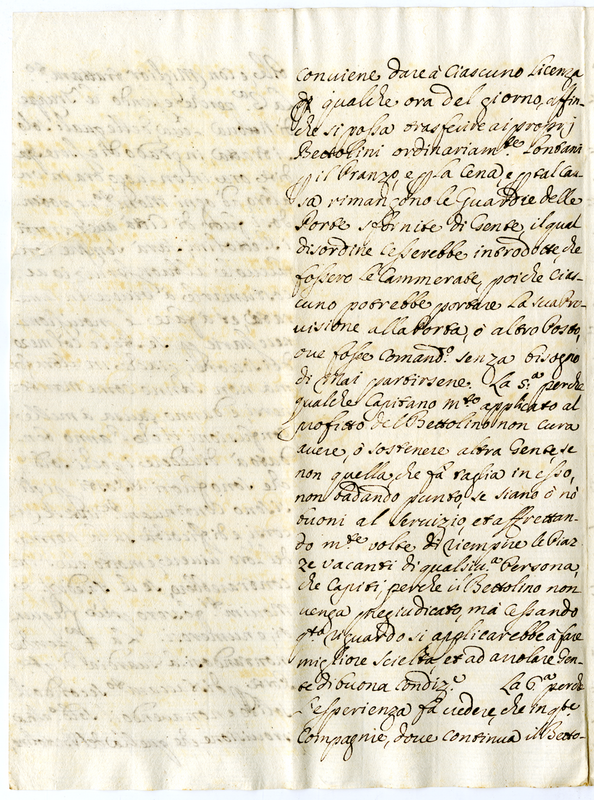 conviene dare à Ciascuno Licenza
di qualche ora del giorno, affin-
che si possa trasferire ai proprij
Bettolini ordinariam.te Lontani
p il Pranzo, e p La Cena, e p tal Cau-
sa rimangono le Guardie delle
Porte sfornite di Gente, il qual
disordine cesserebbe introdotte, che
fossero le Cammerate, poiche Cias-
cuno potrebbe portare La sua Pro-
visione alla Porta, ò altro Posto,
ove fosse Comand.o senza bisogno
di mai partirsene. La 5.a perche
qualche Capitano m.to applicato al
profitto del Bettolino non cura
avere, ò sostenere altra Gente, se
non quella, che fà taglia in esso,
non badando punto, se siano ò nò
buoni al Servizio, et affrettan-
do m.te volte di riempire le Piaz
ze vacanti di qualsiv.a Persona,
che Capiti, perche il Bettolino non
venga pregiudicato, mà Cessando
q.to riguardo si applicarebbe a fare
migliore scielta, et ad arrolare Gen-
te di buona Condiz.e La 6.a perche
l'esperienza fà vedere, che in q.te
Compagnie, dove continua il Betto-